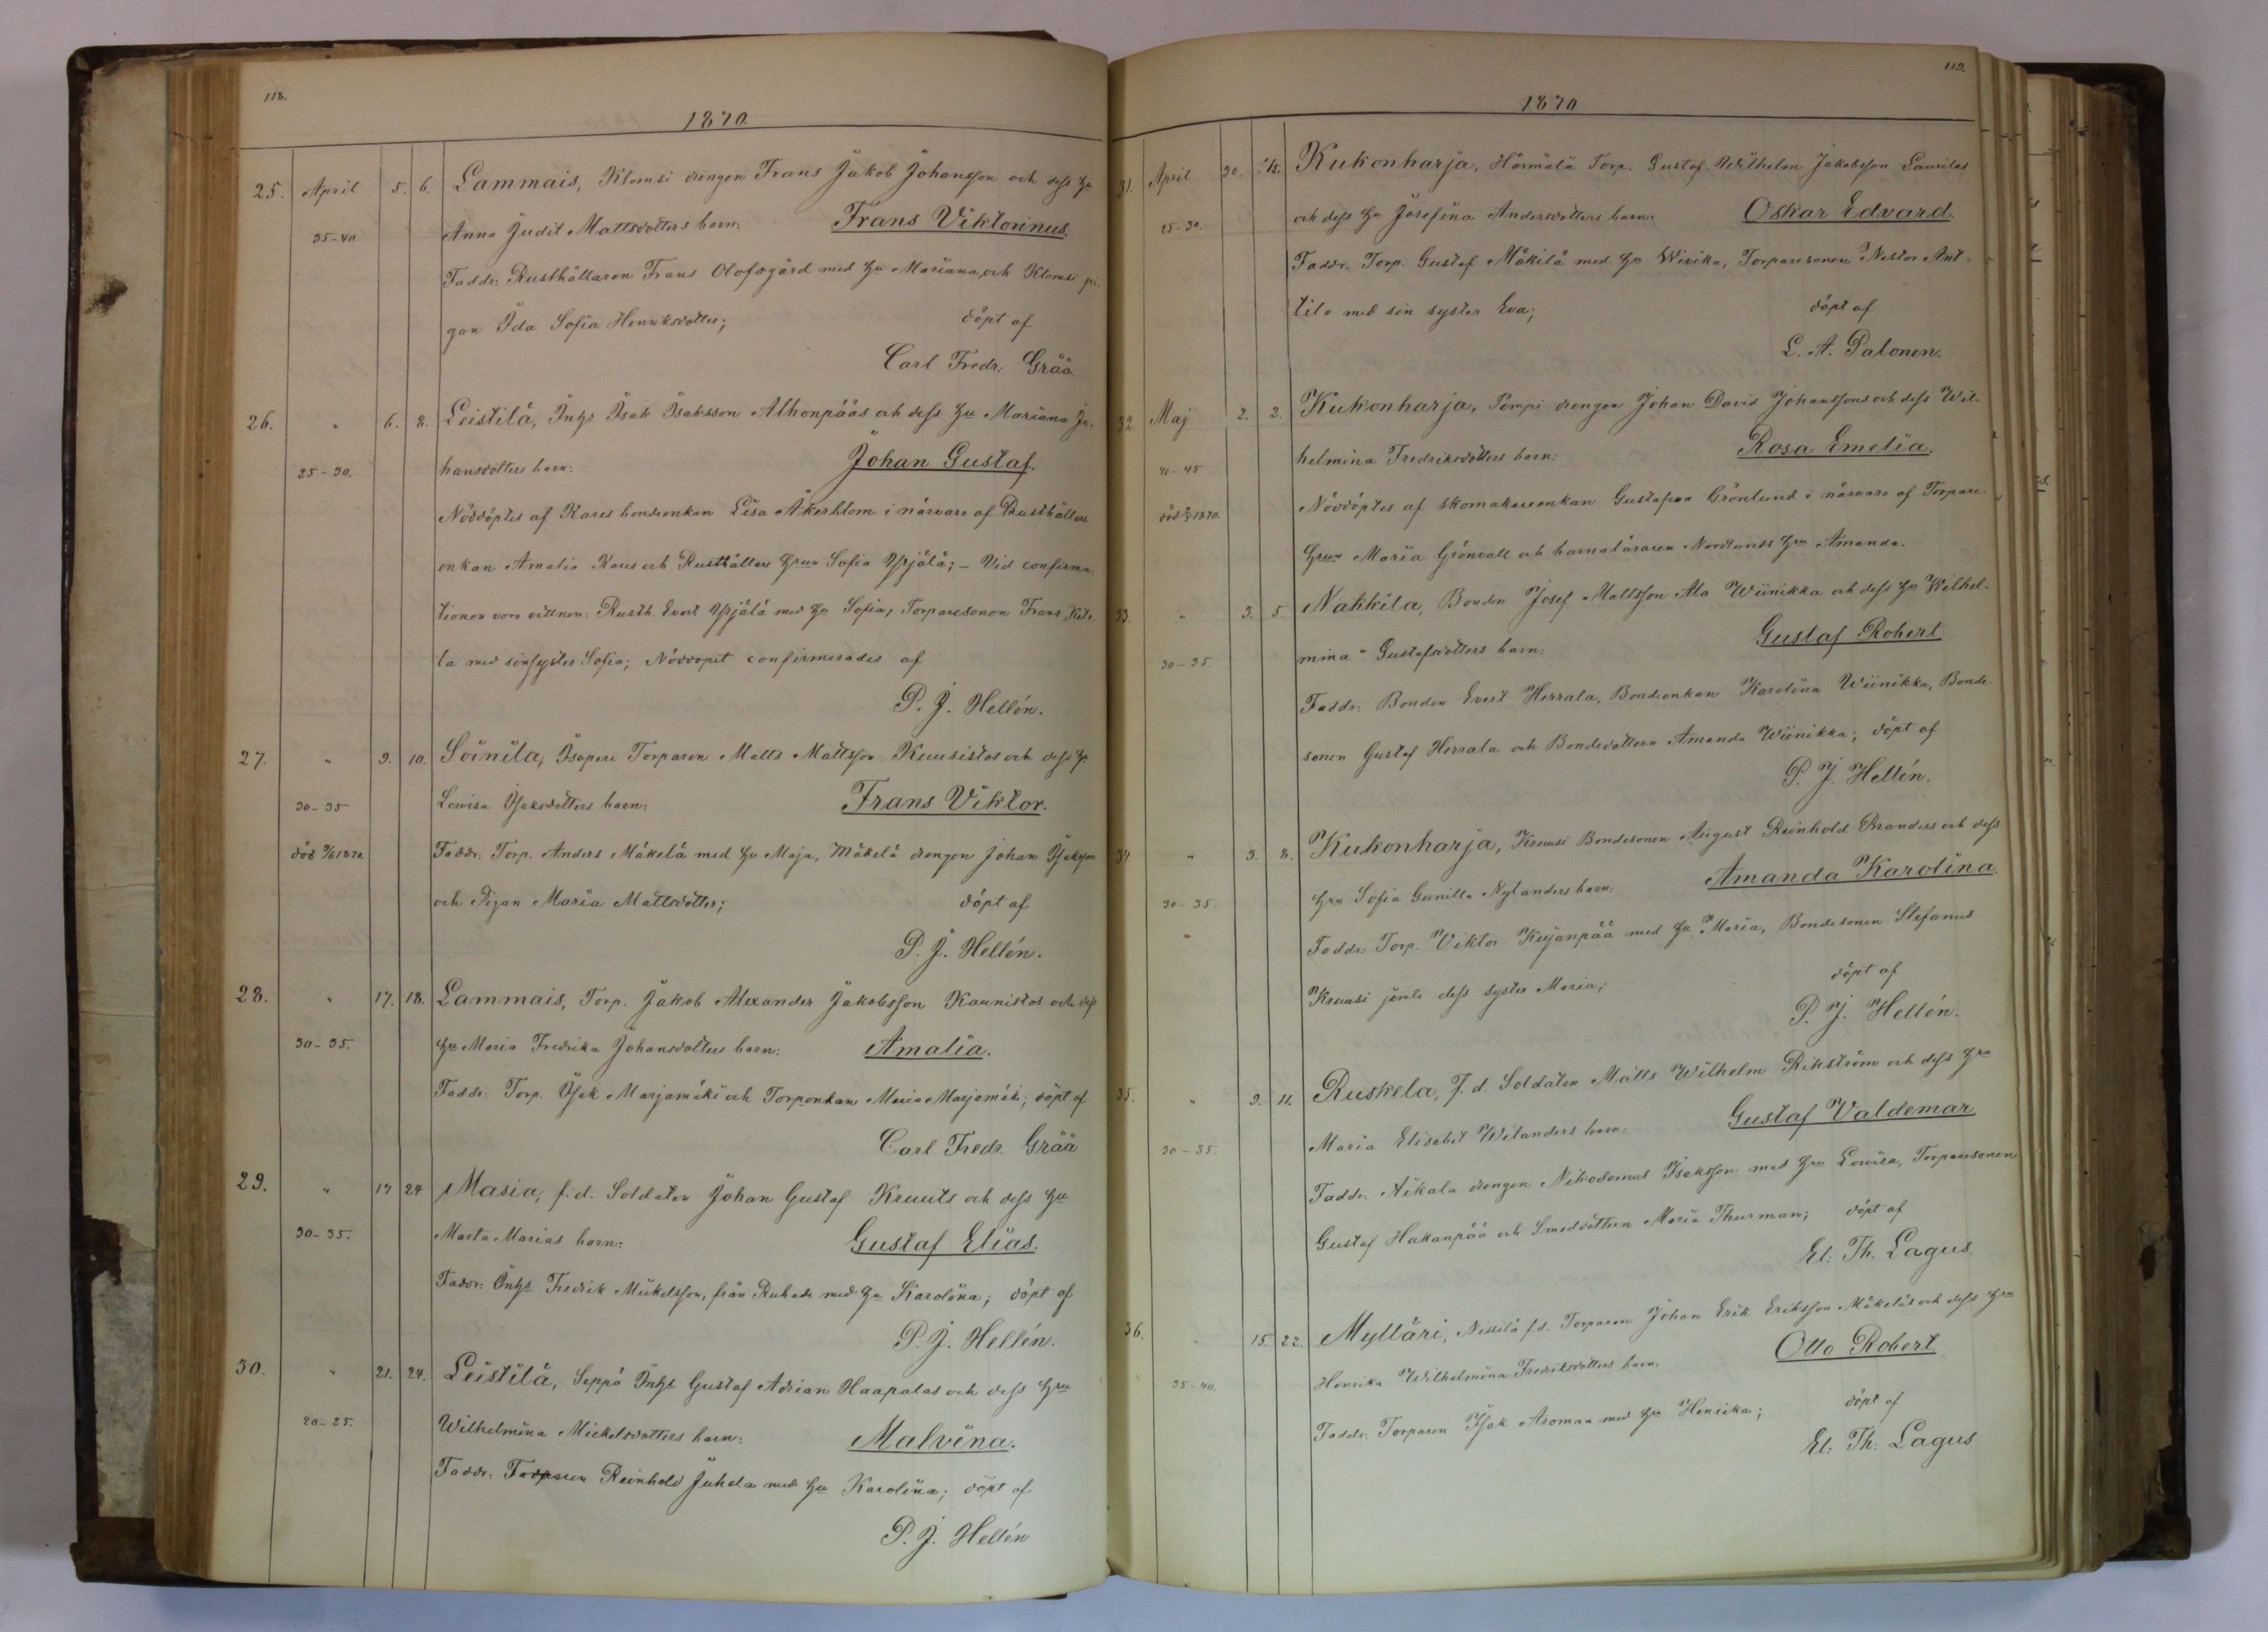 118.
1870.
25. April 5. 6. Lammais, Klomsi drengen Frans Jakob Johansson och dess Hu
35-40 Anna Judit Mattsdotters barn: Frans Viktorinus.
Faddr: Rusthållaren Frans Olofsgård med Hu Mariana, och Klomsi pi-
gan Ida Sofia Henriksdotter; döpt af
Carl Fredr: Grää.
26. " 6. 8. Leistilä, Inhs Isak Isaksson Alhonpääs och dess Hu Mariana Jo-
25-30. hansdotters barn: Johan Gustaf.
Nöddöptes af Kares bondeenkan Lisa Åkerblom i närvaro af Rusthållare
enkan Amalia Kares och Rusthållare Hrun Sofia Yrjälä; - Vid confirma-
tionen voro vittnen: Rusth. Evert Yrjälä med Hu Sofia, Torparesonen Frans Keto-
la med sin syster Sofia; Nöddopet confirmerades af
P. J. Hellén.
27. " 9. 10. Soinila, Isopere Torparen Matts Mattsson Kuusistos och dess Hu
30-35 Lovisa Isaksdotters barn: Frans Viktor.
död 9/6 1870. Faddr: Torp. Anders Mäkelä med Hu Maja, Mäkelä drengen Johan Isaksson
och Pigan Maria Mattsdotter; döpt af
P. J. Hellén.
28. " 17. 18. Lammais, Torp. Jakob Alexander Jakobsson Kaunistos och dess
30-35. Hu Maria Fredrika Johansdotters barn: Amalia.
Faddr: Torp. Isak Marjamäki och Torpenkan Maria Marjamäki; döpt af
Carl Fredr. Grää
29. " 17 24 Masia, f. d. Soldaten Johan Gustaf Kruuts och dess Hu
30-35. Marta Marias barn: Gustaf Elias.
Faddr: Inhs Fredrik Mickelsson, från Ruhade med Hu Karolina; döpt af
P. J. Hellén.
30. " 21. 24. Leistilä, Seppä Inhs Gustaf Adrian Haapalas och dess Hru
20-25. Wilhelmina Mickelsdotters barn: Malvina.
Faddr: Torparen Reinhold Juhola med Hu Karolina; döpt af
P. J. Hellén
119.
1870
31. April 30. 1/5. Kukonharja, Härmälä Torp. Gustaf Wilhelm Jakobsson Laurilas
25-30. och dess Hu Josefina Andersdotters barn: Oskar Edvard.
Faddr. Torp. Gustaf Mäkilä med Hu Wirika, Torparesonen Nestor Ant-
tila med sin syster Eva; döpt af
L. A. Palonen.
32. Maj 2. 2. Kukonharja, Pempi drengen Johan David Johanssons och dess Wil-
40-45 helmina Fredriksdotters barn: Rosa Emelia.
död 2/5 1870. Nöddöptes af skomakareenkan Gustafva Grönlund i närvaro af Torpare-
Hrun Maria Grönvall och barnalärarens Nordlunds Hru Amanda.
33. " 3. 5. Nakkila, Bonden Josef Mattsson Ala Wiinikka och dess Hu Wilhel-
30-35. mina Gustafsdotters barn: Gustaf Robert
Faddr: Bonden Evert Herrala, Bondeenkan Karolina Wiinikka, Bonde-
sonen Gustaf Herrala och Bondedottern Amanda Wiinikka; döpt af
P. J. Hellén.
34. " 3. 8. Kukonharja, Kruusi Bondesonen August Reinhold Branders och dess
30-35. Hru Sofia Gunilla Nylanders barn: Amanda Karolina.
Faddr: Torp. Viktor Kujanpää med Hu Maria, Bondesonen Stefanus
Kruusi jemte dess syster Maria; döpt af
P. J. Hellén.
35. " 9. 11. Ruskela, F. d. Soldaten Matts Wilhelm Rikström och dess Hru
30-35. Maria Elisabet Wilanders barn: Gustaf Valdemar
Faddr: Aikala drengen Nikodemus Isaksson med Hru Lovisa, Torparesonen
Gustaf Hakanpää och Smeddottern Maria Thurman; döpt af
El: Th. Lagus.
36. " 15. 22. Mylläri, Nissilä f. d. Torparen Johan Erik Eriksson Mäkeläs och dess Hru
35-40. Henrika Wilhelmina Fredriksdotters barn: Otto Robert
Faddr: Torparen Isak Aromaa med Hu Henrika; döpt af
El: Th: Lagus